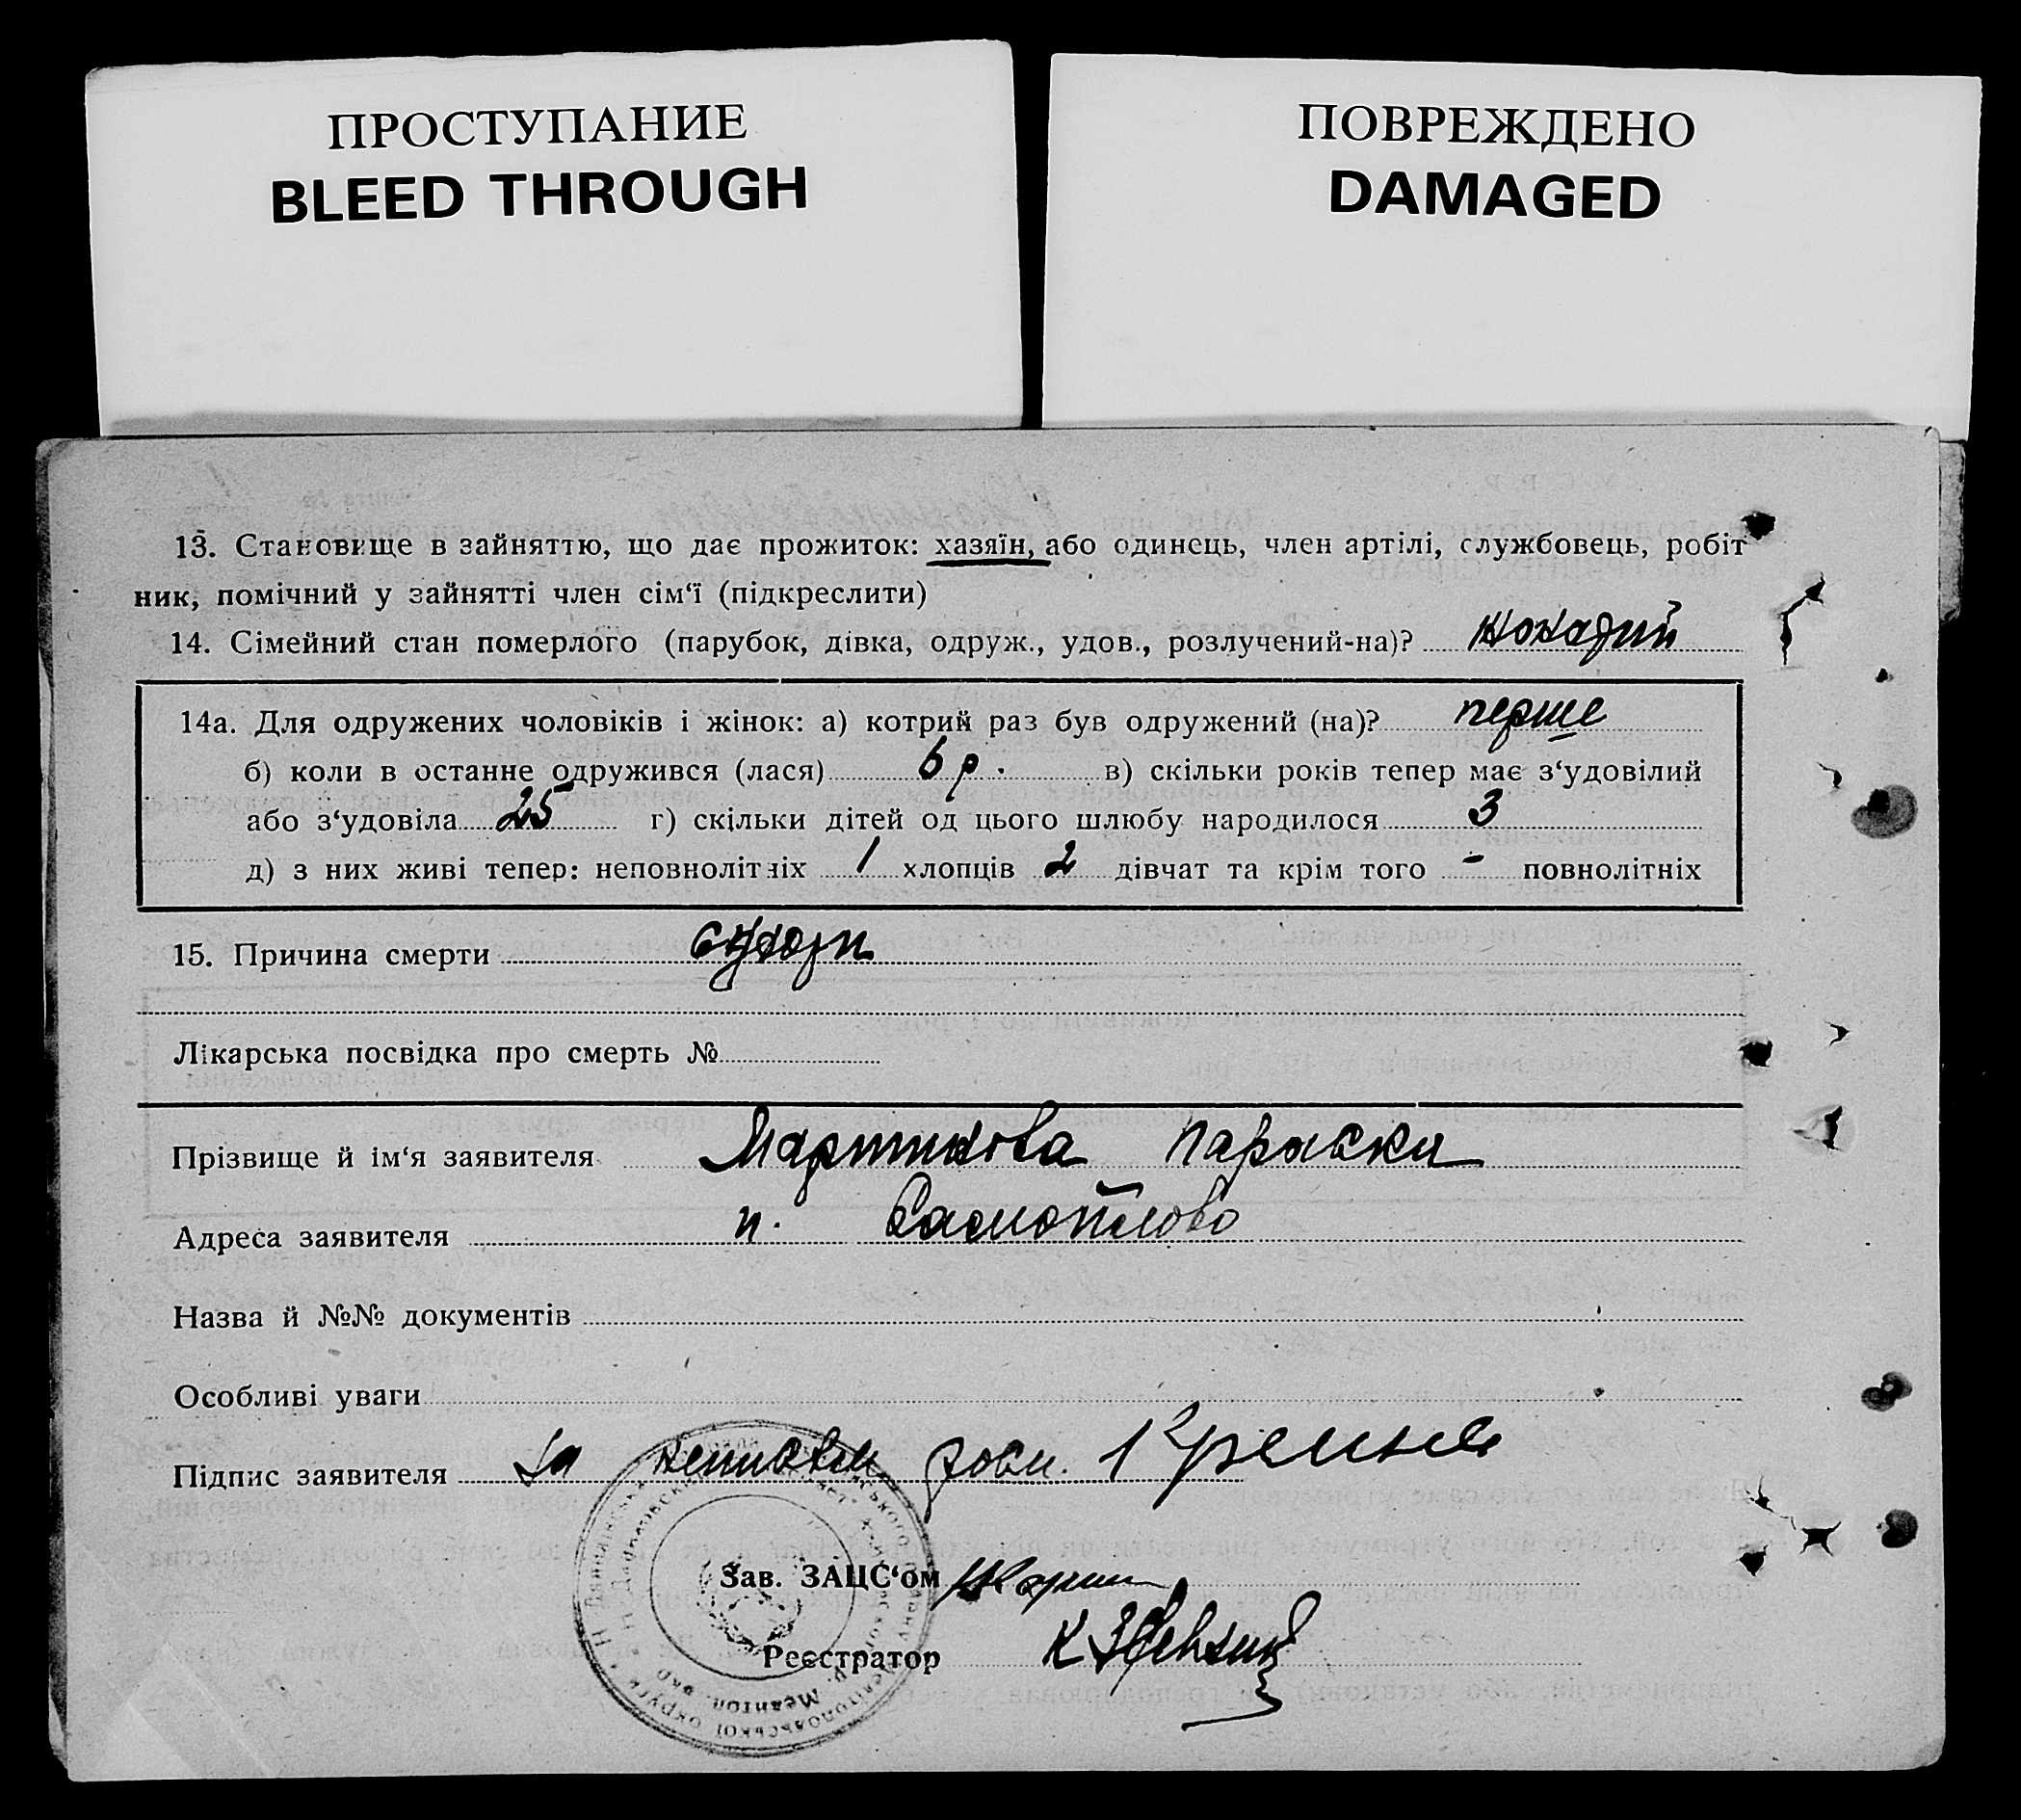 ПРОСТУПАНИЕ
BLEED THROUGH
ПОВРЕЖДЕНО
DAMAGED
13. Становище в зайняттю, що дає прожиток: хазяїн, або одинець, член артілі, службовець, робіт
ник, помічний у зайнятті член сім‘ї (підкреслити)
14. Сімейний стан померлого (парубок, дівка, одруж., удов., розлучений-на)?
14а. Для одружених чоловіків і жінок: а) котрий раз був одружений (на)? перше
б) коли в останне одружився (лася) 6 р. в) скільки років тепер має з‘удовілий
або з‘удовіла 25 г) скільки дітей од цього шлюбу народилося 3
д) з них живі тепер: неповнолітніх 1 хлопців 2 дівчат та крім того - повнолітніх
15. Причина смерти сухоти
Лікарська посвідка про смерть №
Прізвище й ім‘я заявителя Мартинова Параска
Адреса заявителя п.
Назва й №№ документів
Особливі уваги
Підпис заявителя за
Зав. ЗАЦС‘ом
Реєстратор К